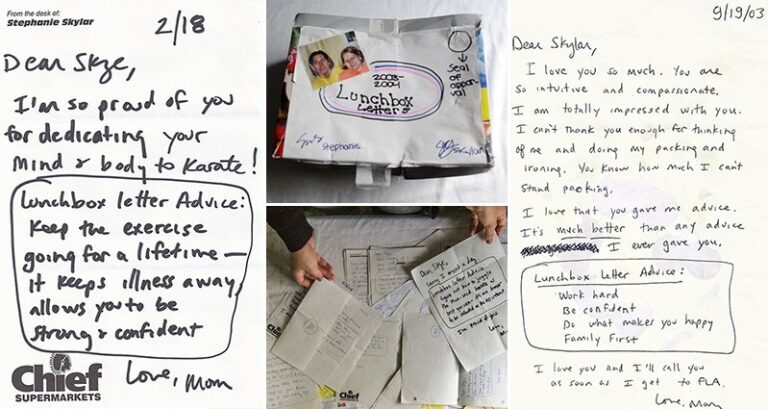 From the desk of:
Stephanie Skylar
2/18
Dear Skye,
I'm so proud of you
for dedicating your
mind & body to Karate!
Lunchbox letter Advice:
Keep the exercise
going for a lifetime –
it keeps illness away,
allows you to be
strong & confident
Love, Mom
Chief
SUPERMARKETS
2003-
2004
Lunchbox
Letters
Seal
of
appro
val
Stephanie
Skylar
Dear Skye,
Sorry I missed a day.
Lunchbox Letter Advice:
Figure out how to juggle
I'm proud of you.
Chief
9/19/03
Dear Skylar,
I love you so much. You are
so intuitive and compassionate.
I am totally impressed with you.
I can't thank you enough for thinking
of me and doing my packing and
ironing. You know how much I can't
stand packing.
I love that you gave me advice.
It's much better than any advice
I ever gave you.
Lunchbox Letter Advice:
Work hard
Be confident
Do what makes you happy
Family First
I love you and I'll call you
as soon as I get to FLA.
Love, Mom